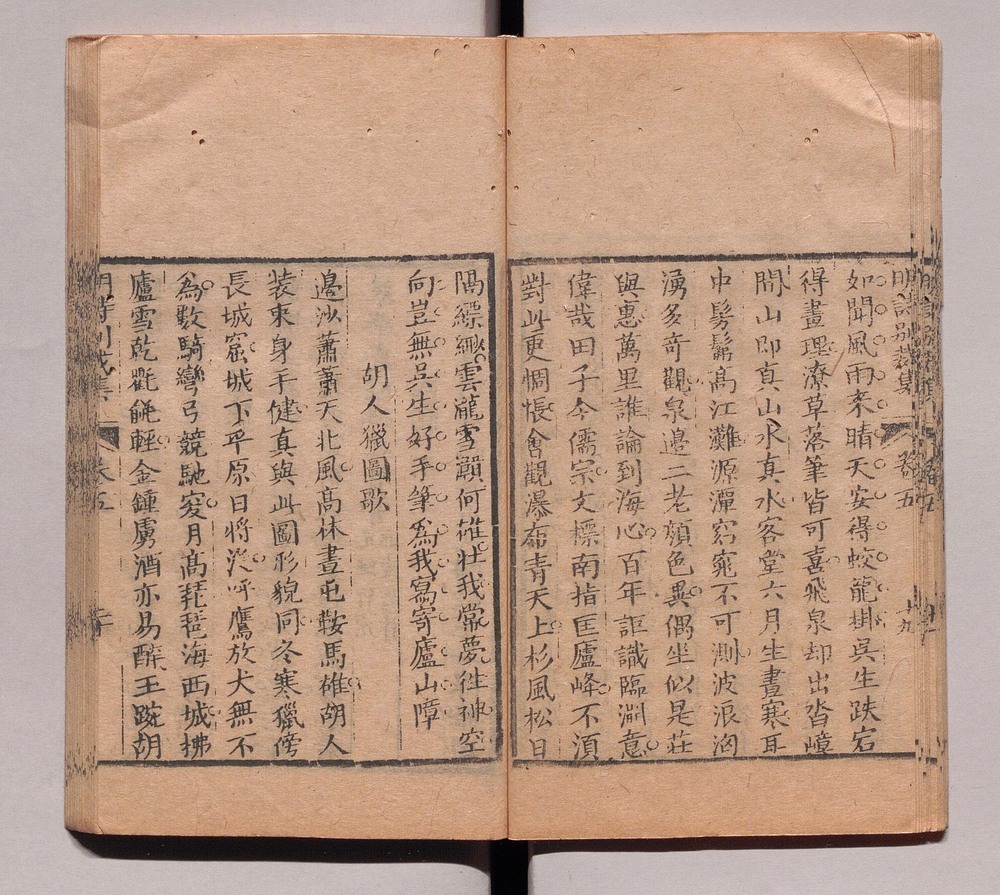 明詩別裁集 卷五 十九
如聞風雨來晴天安得蛟龍掛吳生跌宕
得畫理潦草落筆皆可喜飛泉却出沓嶂
間山即真山水真水客堂六月生晝寒耳
中髣髴高江灘源潭窈窕不可測波浪洶
湧多奇觀泉邊二老顏色異偶坐似是莊
與惠萬里誰論到海心百年詎識臨淵意
偉哉田子今儒宗文標南指匡廬峰不須
對此更惆悵會觀瀑布青天上杉風松日
隔縹緲雲龍雪瀨何雄壯我常夢徃神空
向豈無吳生好手筆爲我寫寄廬山障
胡人獵圖歌
邊沙蕭蕭天北風高林晝屯鞍馬雄胡人
装束身手健真與此圖形貌同冬寒獵傍
長城窟城下平原日將没呼鷹放犬無不
為數騎彎弓競馳突月高琵琶海西城拂
廬雪乾氍毹輕金鍾虜酒亦易醉玉跪胡
明詩別裁集 卷五 二十